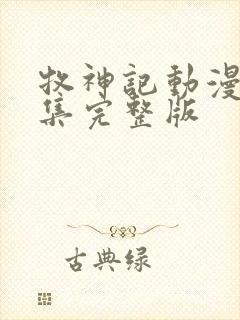 牧神記動漫
集完整版
古典绿